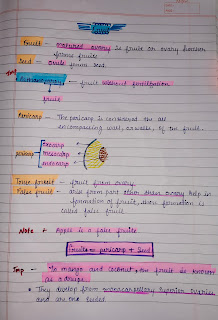 Fruit - matured ovary is fruit or ovary
forms fruits
Seed - ovule forms seed.
Imp
Parthenocarpic - fruit without fertilization
fruit
Pericarp
- The pericarp is considered the all
encompassing wall, or walls, of the fruit.
pericarp
Exocarp
mesocarp
endocarp
True fruit - fruit from ovary.
False fruit - arise from part other than ovary help in
formation of fruit, then formation is
called false fruit
Note + Apple is a false fruit
Fruits = pericarp + Seed
Imp - In mango and coconut, the fruit is known
as a drupe
They develop from monocarpellary superior ovaries
and are one seeded